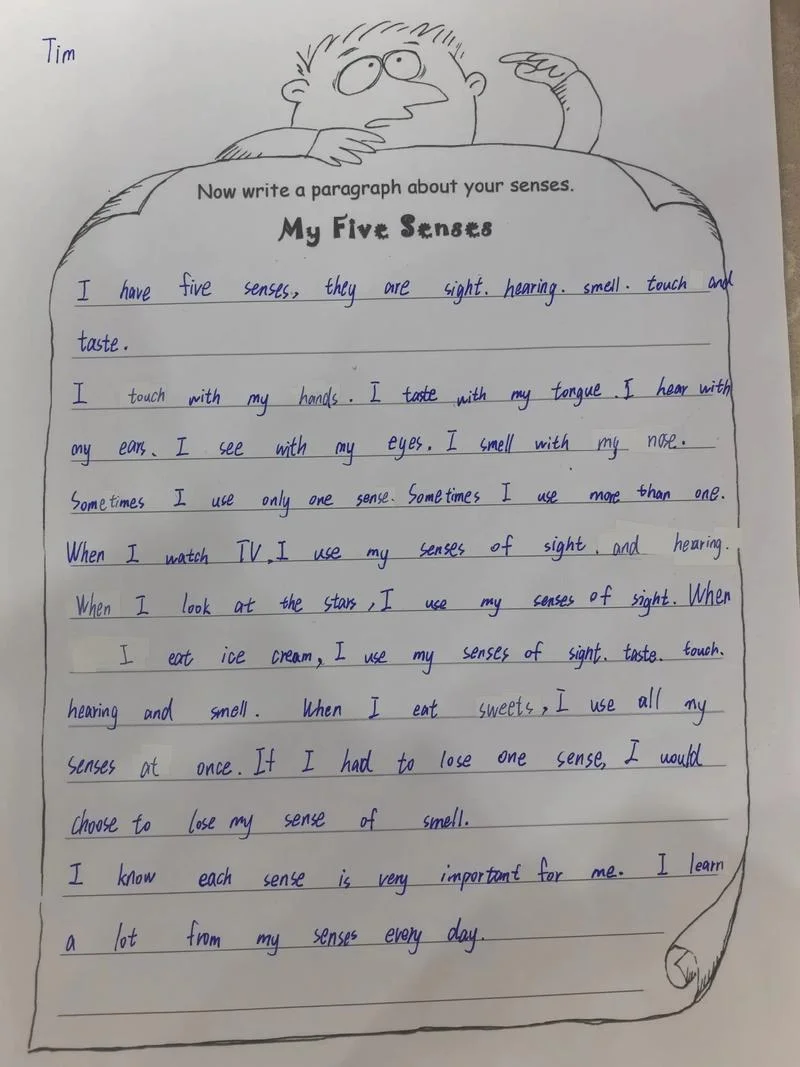 Tim
Now write a paragraph about your senses.
My Five Senses
I have five senses, they are sight. hearing. smell. touch and
taste.
I touch with my hands. I taste with my tongue. I hear with
my ears. I see with my eyes. I smell with my nose.
Sometimes I use only one sense. Sometimes I use more than one.
When I watch TV, I use my senses of sight. and hearing.
When I look at the stars, I use my senses of sight. When
I eat ice cream, I use my senses of sight. taste. touch.
hearing and smell. When I eat sweets, I use all my
senses at once. If I had to lose one sense, I would
choose to lose my sense of smell.
I know each sense is very important for me. I learn
a lot from my senses every day.